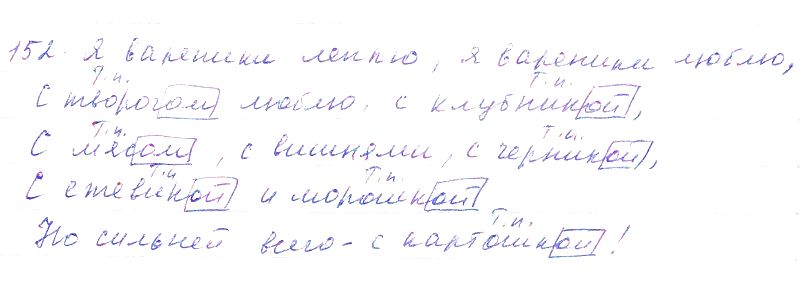 152. Я вареники леплю, я вареники люблю,
Т.п. Т.п.
С творогом люблю, с клубникой,
Т.п. Т.п.
С мясом, с вишнями, с черникой,
Т.п. Т.п.
С ежевикой и морошкой
Т.п.
Но сильней всего - с картошкой!